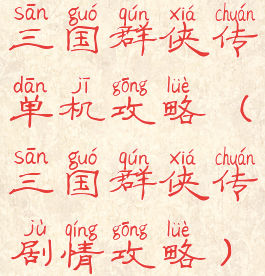 sān guó qún xiá chuán
三国群侠传
dān jī gōng lüè
单机攻略（
sān guó qún xiá chuán
三国群侠传
jù qíng gōng lüè
剧情攻略）